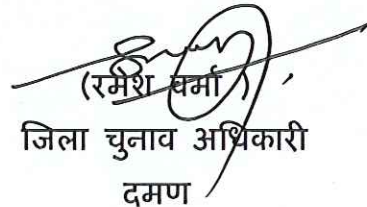 (रमेश वर्मा)
जिला चुनाव अधिकारी
दमण